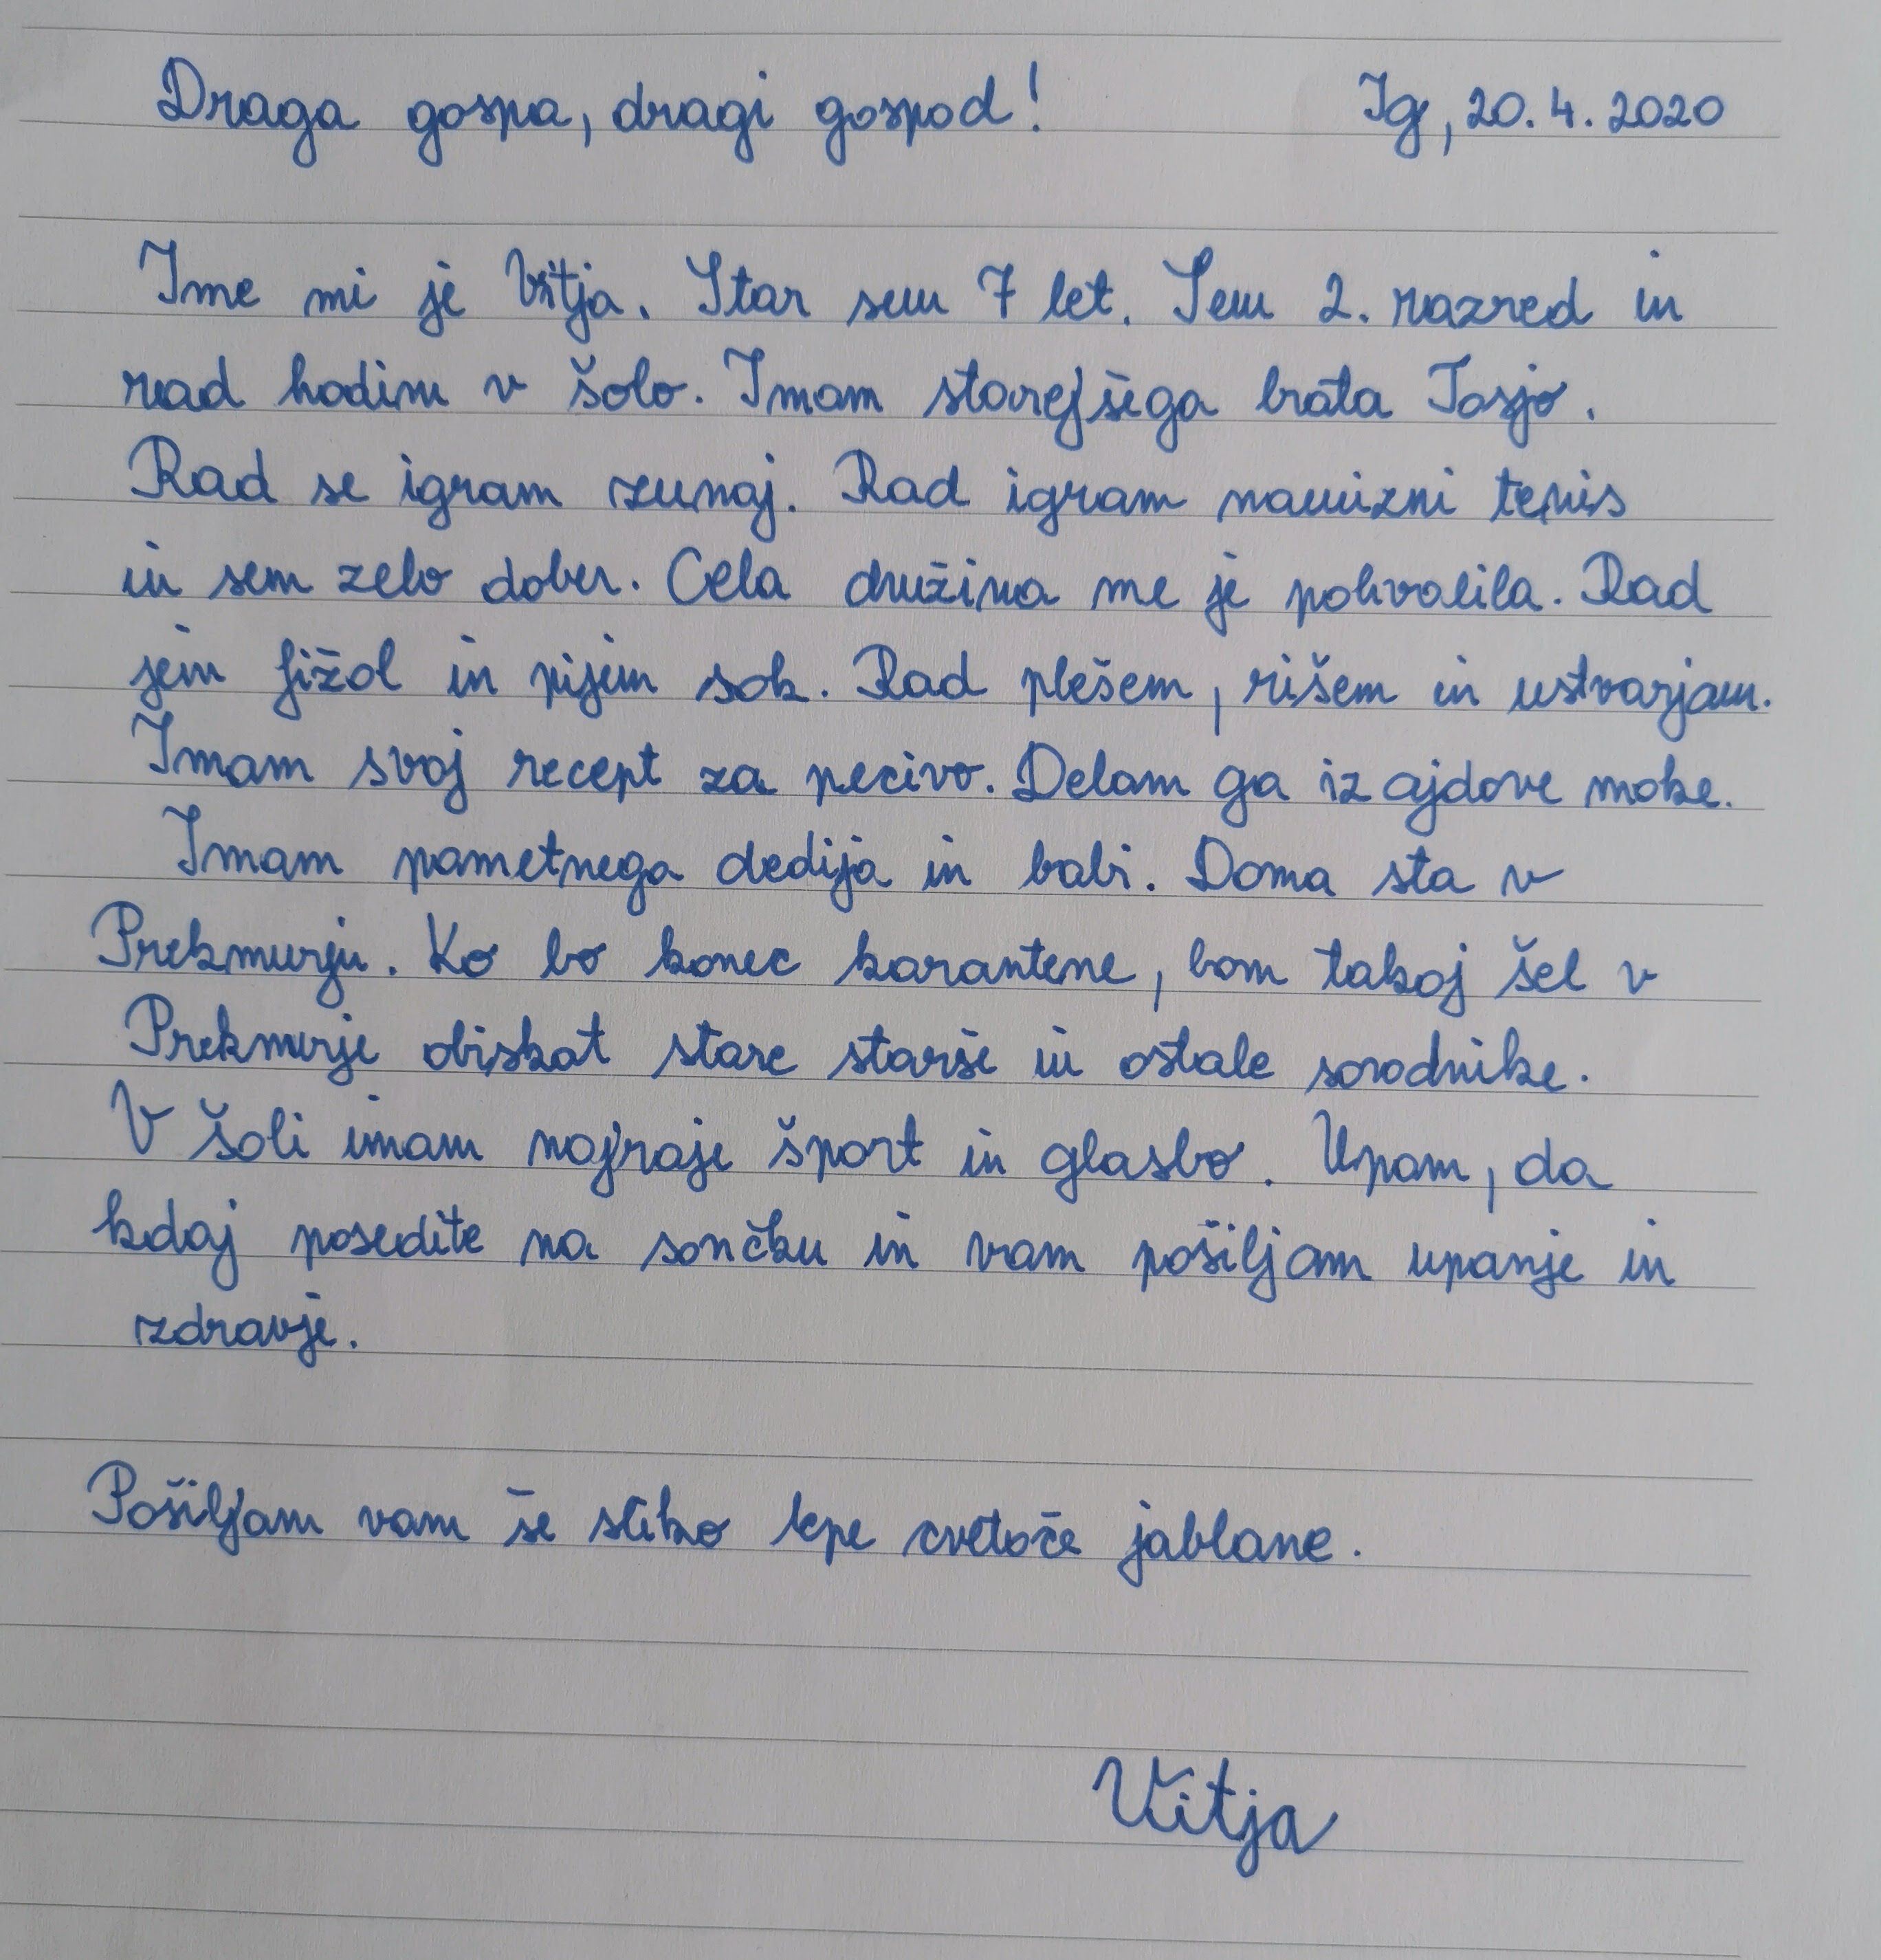 Draga gospa, dragi gospod! Ig, 20. 4. 2020
Ime mi je Vitja. Star sem 7 let. Sem 2. razred in
rad hodim v šolo. Imam starejšega brata Tasjo.
Rad se igram zunaj. Rad igram namizni tenis
in sem zelo dober. Cela družina me je pohvalila. Rad
jem fižol in pijem sok. Rad plešem, rišem in ustvarjam.
Imam svoj recept za pecivo. Delam ga iz ajdove moke.
Imam pametnega dedija in babi. Doma sta v
Prekmurju. Ko bo konec karantene, bom takoj šel v
Prekmurje obiskat stare starše in ostale sorodnike.
V šoli imam najraje šport in glasbo. Upam, da
kdaj posedite na sončku in vam pošiljam upanje in
zdravje.
Pošiljam vam še sliko lepe cvetoče jablane.
Vitja